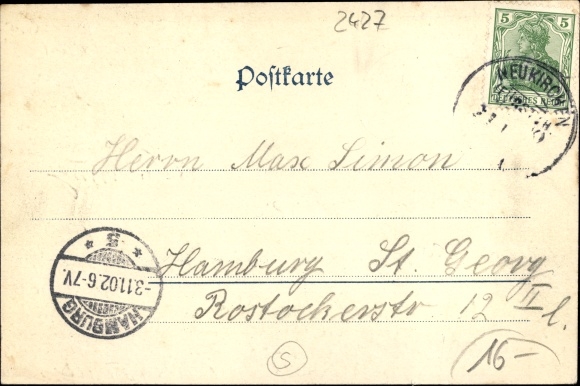 2427
5 5
DEUTSCHES REICH
NEUKIRCHEN
Postkarte
Herrn Max Simon
Hamburg St. Georg
Rostockerstr 12 II l.
* 5 *
-3.11.02.6-7V.
HAMBURG
S
16-